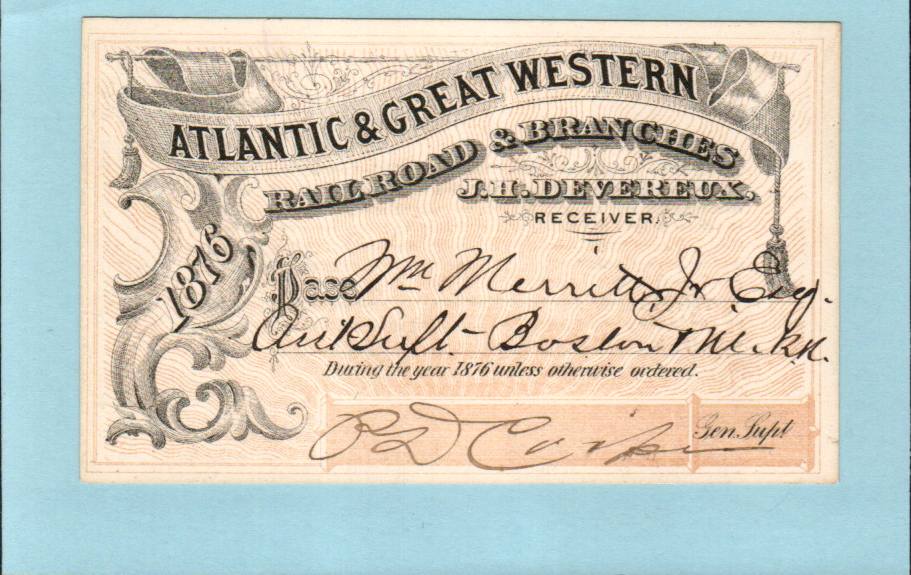 ATLANTIC & GREAT WESTERN
RAIL ROAD & BRANCHES
J. H. DEVEREUX.
RECEIVER.
1876
Pass Wm Merritt Jr Esq.
Supt Boston
During the year 1876 unless otherwise ordered.
P D Cooper
Gen. Supt